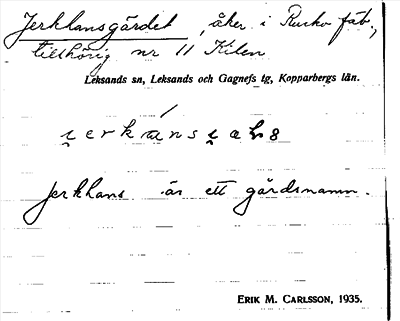 Jerklansgärdet, åker i Rusko fäb.,
tillhörig nr 11 Kilen
Leksands sn, Leksands och Gagnefs tg, Kopparbergs län.
Jerkhans är ett gårdsnamn.
ERIK M. CARLSSON, 1935.